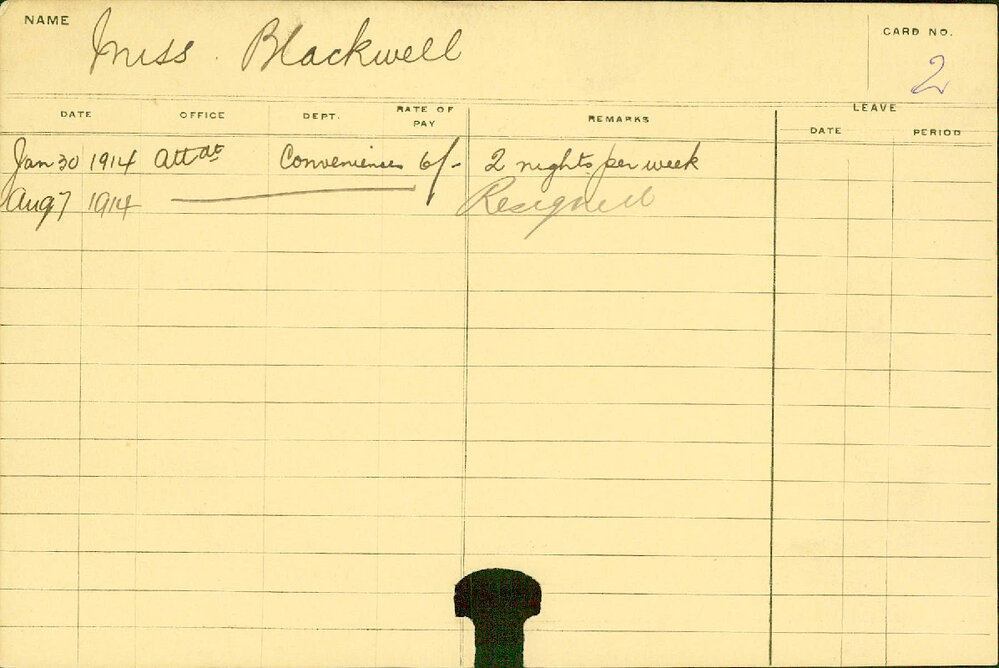 NAME Miss Blackwell CARD NO. 2
DATE OFFICE DEPT. RATE OF PAY REMARKS LEAVE
DATE PERIOD
Jan 30 1914 Attdt Conveniences 6/- 2 nights per week
Aug 7 1914 Resigned